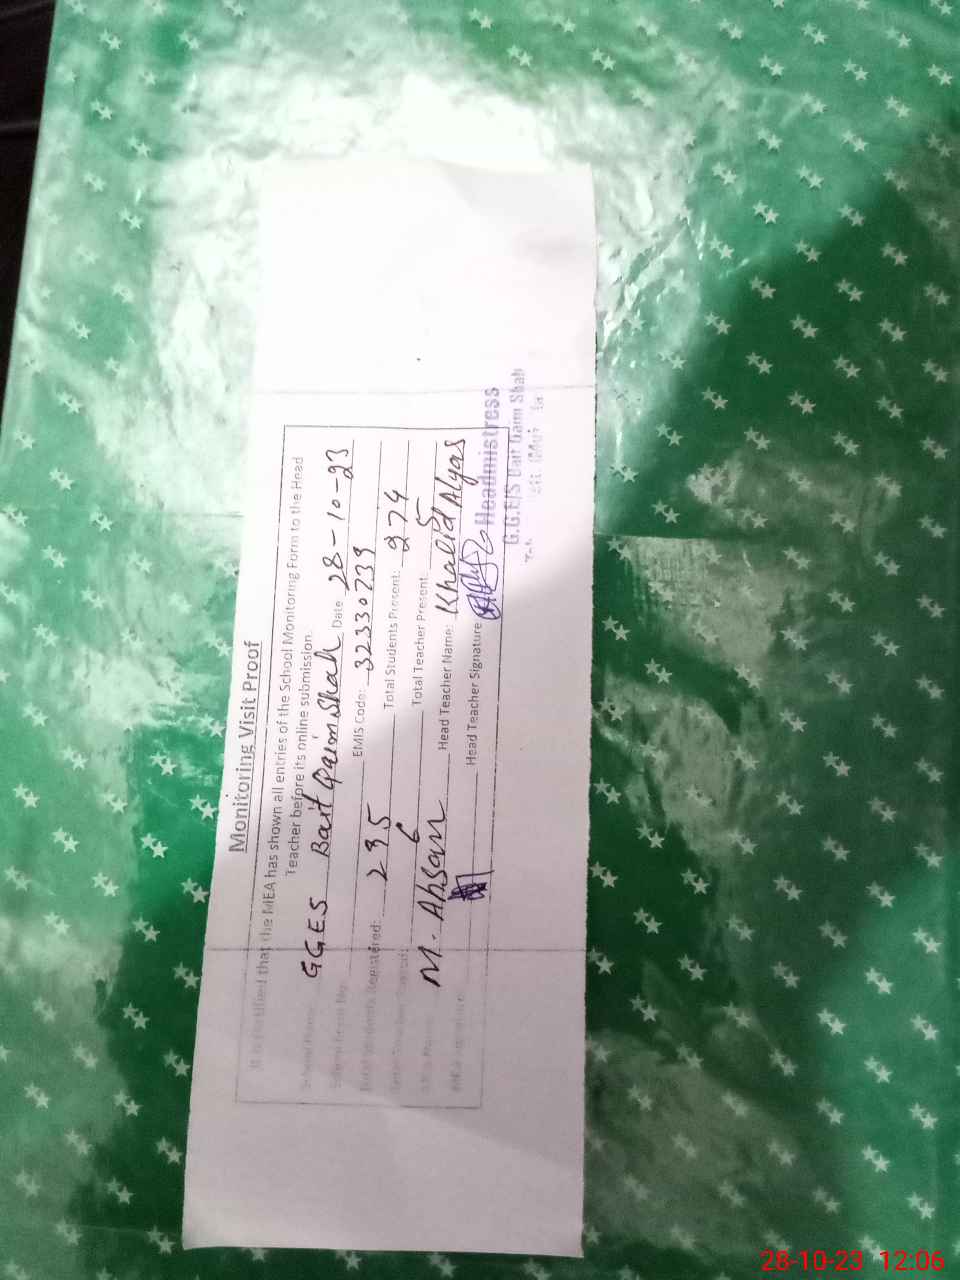 Monitoring Visit Proof
It is certified that the MEA has shown all entries of the School Monitoring Form to the Head
Teacher before its online submission.
School Name: GGES Bait Qaim Shah Date 28-10-23
EMIS Code: 32330239
Total Students Registered: 295 Total Students Present: 274
6 Total Teacher Present: 5
M. Ahsan Head Teacher Name: Khalid Alyas
MEA Signature: Head Teacher Signature
Headmistress
G.G.E/S Bait Qaim Shah
28-10-23 12:06